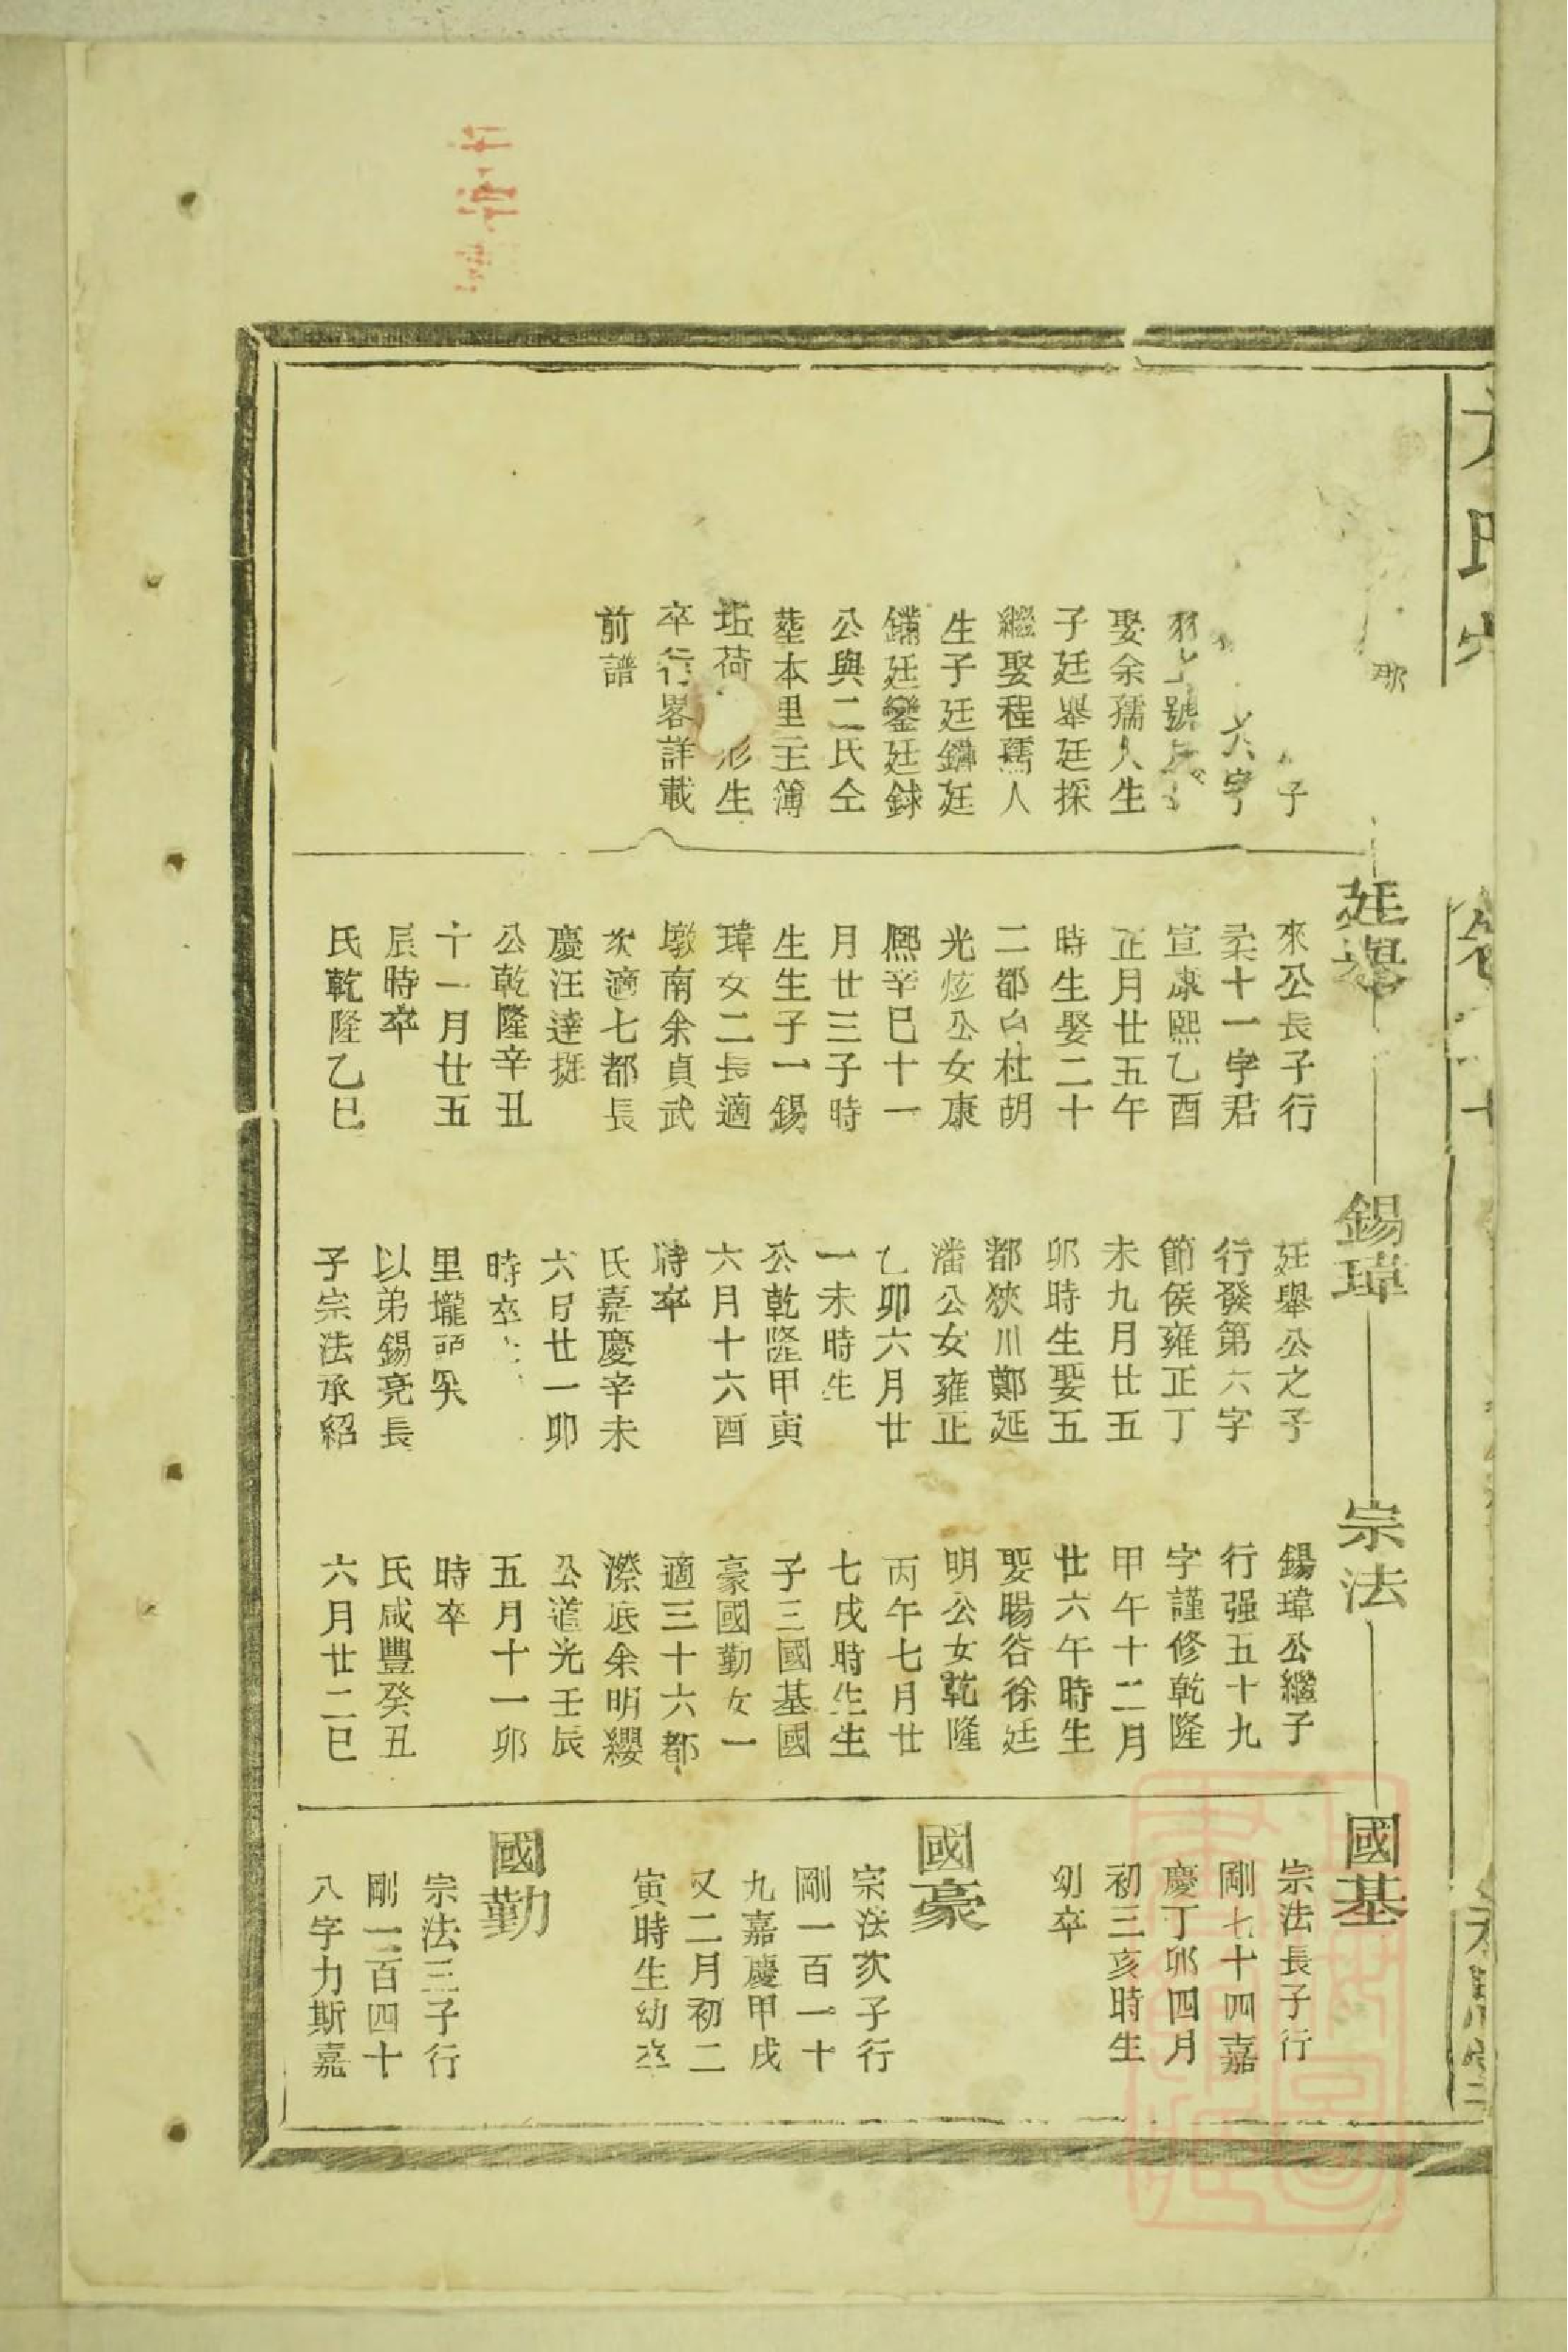 子
六字
號
娶余孺人生
子廷舉廷採
繼娶程孺人
生子廷鏽廷
鏞廷鑾廷銶
公與二氏仝
塟本里王簿
坵荷形生
卒行畧詳載
前譜
廷舉
來公長子行
柔十一字君
宣康熙乙酉
正月廿五午
時生娶二十
二都白杜胡
光炫公女康
熙辛巳十一
月廿三子時
生生子一錫
瑋女二長適
墩南余貞武
次適七都長
慶汪達挺
公乾隆辛丑
十一月廿五
辰時卒
氏乾隆乙巳
錫瑋
廷舉公之子
行發第六字
節侯雍正丁
未九月廿五
卯時生娶五
都狹川鄭延
潘公女雍正
乙卯六月廿
一未時生
公乾隆甲寅
六月十六酉
時卒
氏嘉慶辛未
六月廿一卯
時卒
里壠
以弟錫亮長
子宗法承紹
宗法
錫瑋公繼子
行强五十九
字謹修乾隆
甲午十二月
廿六午時生
娶暘谷徐廷
明公女乾隆
丙午七月廿
七戌時生生
子三國基國
豪國勤女一
適三十六都
漈底余明纓
公道光壬辰
五月十一卯
時卒
氏咸豐癸丑
六月廿二巳
國基
宗法長子行
剛七十四嘉
慶丁卯四月
初三亥時生
幼卒
國豪
宗法次子行
剛一百一十
九嘉慶甲戌
又二月初二
寅時生幼卒
國勤
宗法三子行
剛一百四十
八字力斯嘉